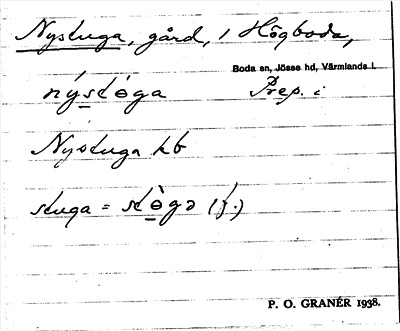 Nystuga, gård, i Högboda,
Boda sn, Jösse hd, Värmlands l.
nýstöga Prep. i
Nystuga kb
stuga = stò̱gə (f.)
P. O. GRANÉR 1938.